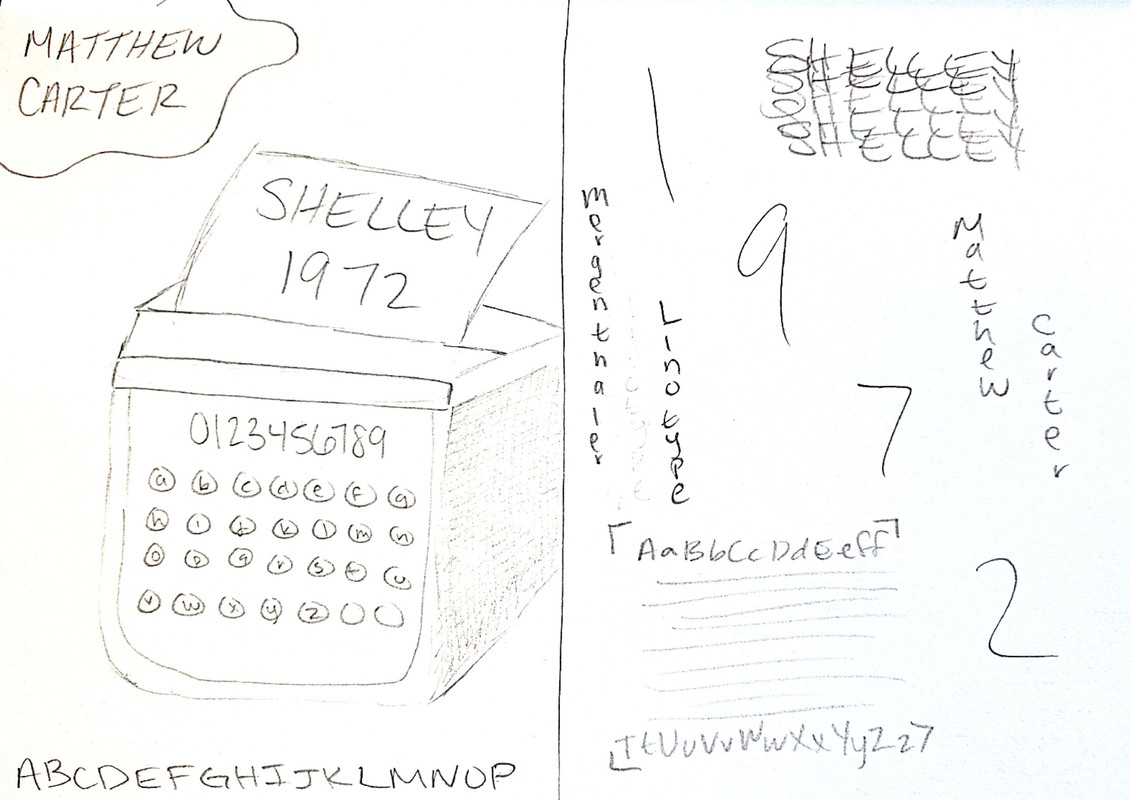 MATTHEW
CARTER
SHELLEY
1972
0123456789
a b c d e f g
h i j k l m n
o p q r s t u
v w x y z
ABCDEFGHIJKLMNOP
SHELLEY
SHELLEY
SHELLEY
SHELLEY
1
9
7
2
Merganthaler
Linotype
Matthew
Carter
AaBbCcDdEeFf
TtUuVvWwXxYyZz